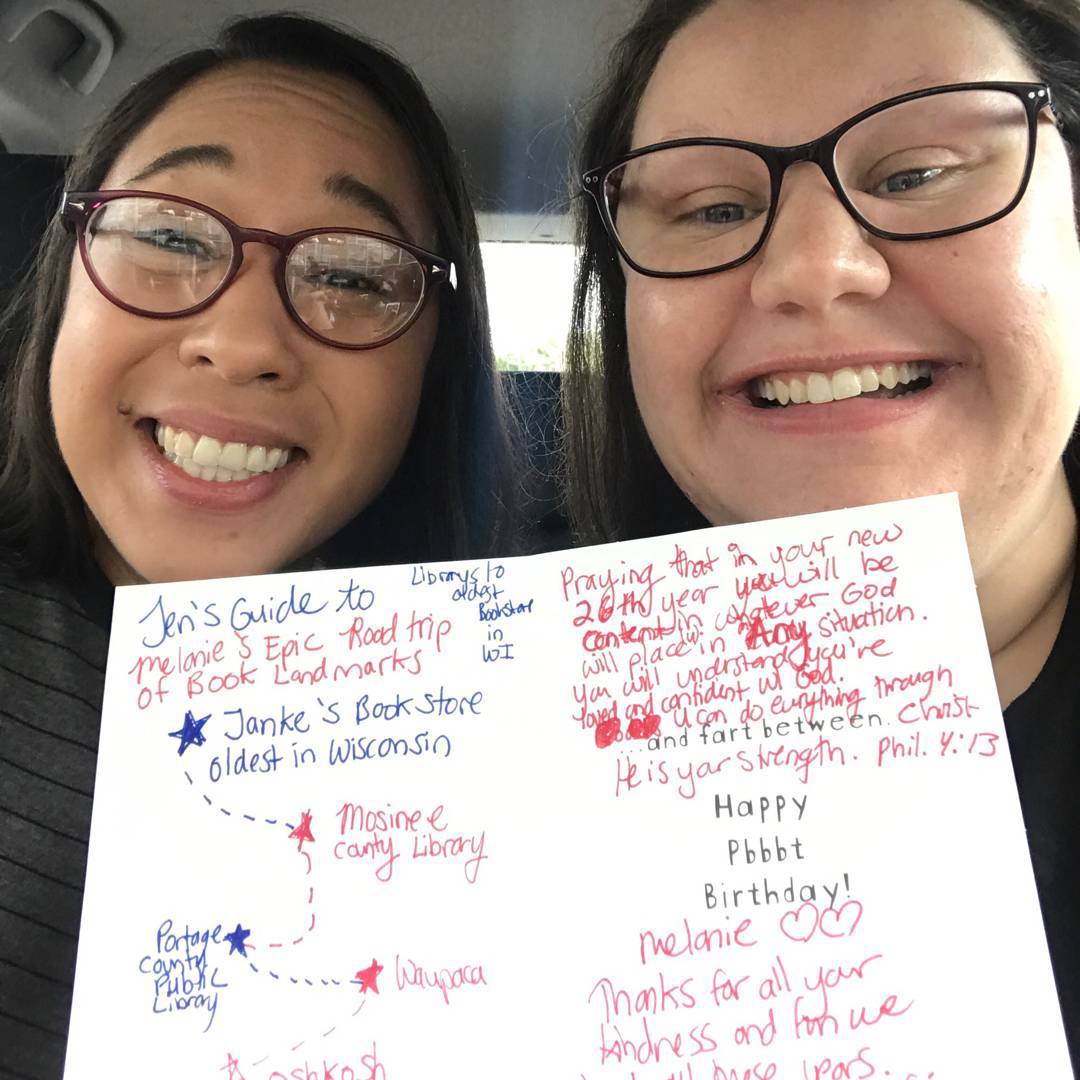 Jen's Guide to
Melanie's Epic Road trip
of Book Landmarks
Librarys to
oldest
Bookstore
in
WI
Janke's Book store
oldest in Wisconsin
Mosinee
County Library
Portage
County
Public
Library
Waupaca
oshkosh
Praying that in your new
26th year you will be
content in whatever God
will place in Any situation.
you will understand you're
loved and confident w/ God.
U can do everything through
...and fart between. Christ
He is your strength. Phil. 4:13
Happy
Pbbbt
Birthday!
melanie ♡♡
Thanks for all your
kindness and fun we
all these years.